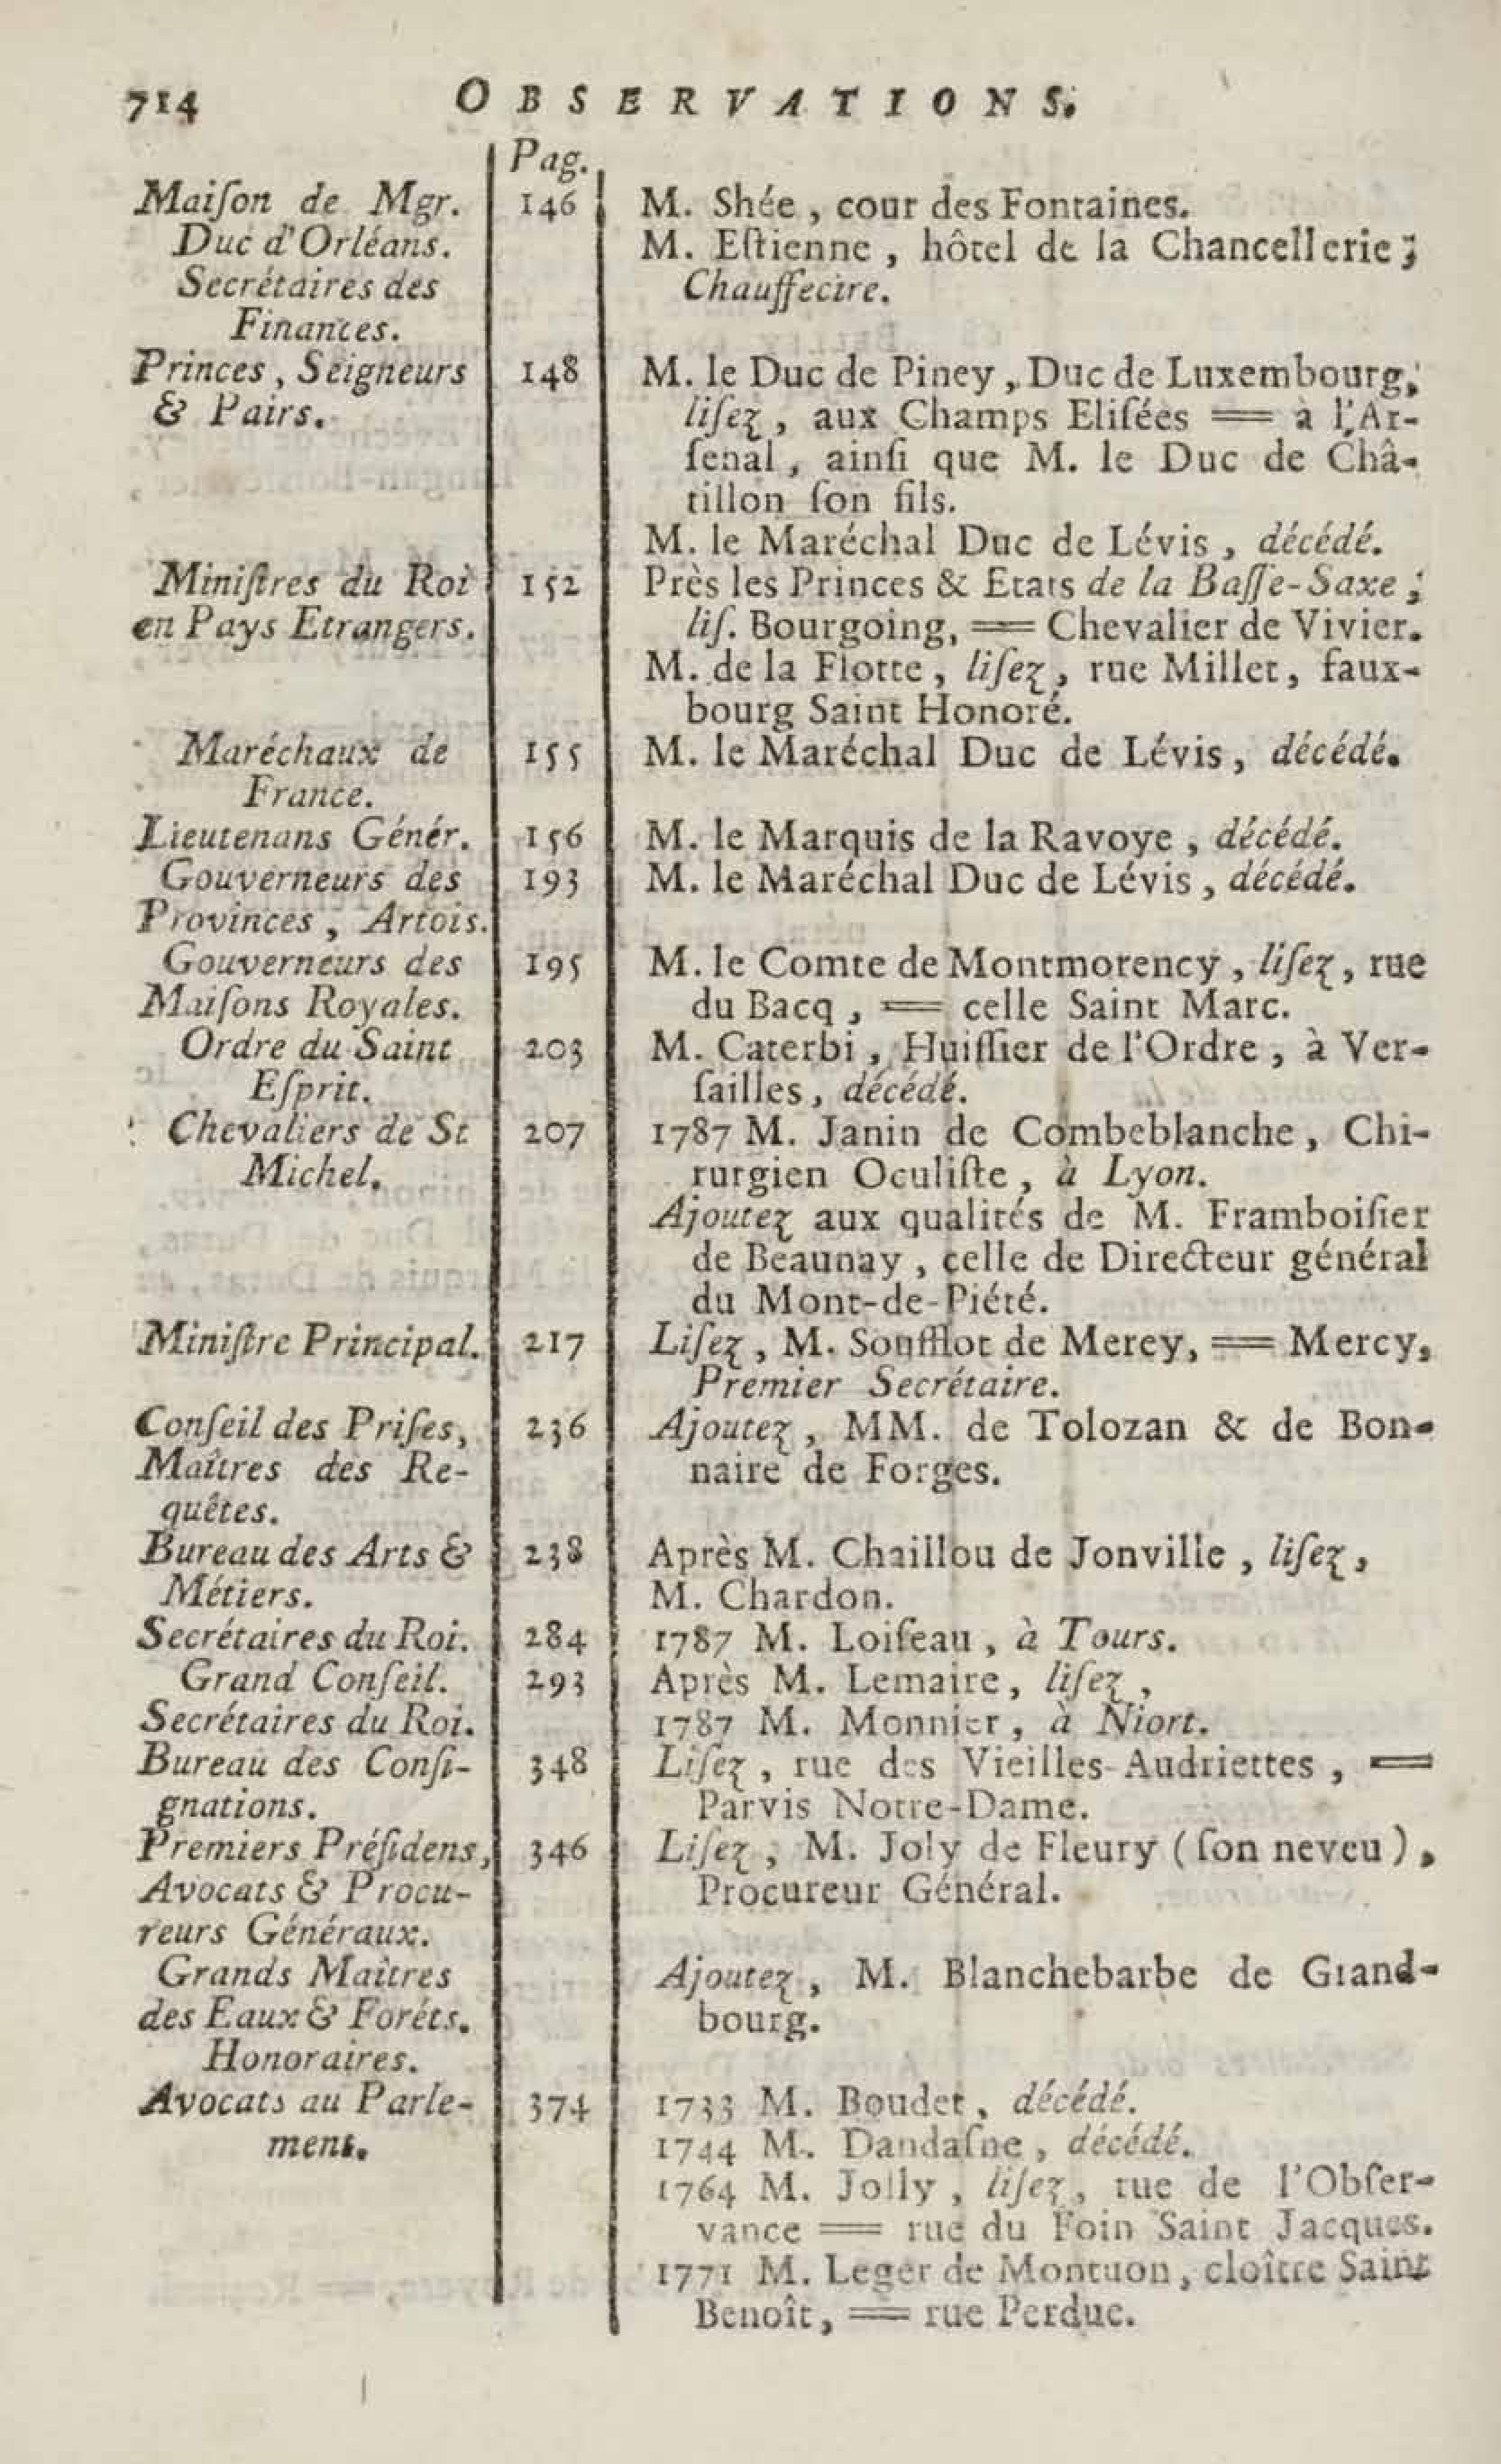 714 OBSERVATIONS.
Pag.
Maiſon de Mgr. 146 M. Shée, cour des Fontaines.
Duc d'Orléans. M. Eſtienne, hôtel de la Chancellerie;
Secrétaires des Chauffecire.
Finances.
Princes, Seigneurs 148 M. le Duc de Piney, Duc de Luxembourg,
& Pairs. liſez, aux Champs Eliſées = à l'Ar-
ſenal, ainſi que M. le Duc de Châ-
tillon ſon fils.
M. le Maréchal Duc de Lévis, décédé.
Miniſtres du Roi 152 Près les Princes & Etats de la Baſſe-Saxe;
en Pays Etrangers. liſ. Bourgoing, = Chevalier de Vivier.
M. de la Flotte, liſez, rue Millet, faux-
bourg Saint Honoré.
Maréchaux de 155 M. le Maréchal Duc de Lévis, décédé.
France.
Lieutenans Génér. 156 M. le Marquis de la Ravoye, décédé.
Gouverneurs des 193 M. le Maréchal Duc de Lévis, décédé.
Provinces, Artois.
Gouverneurs des 195 M. le Comte de Montmorency, liſez, rue
Maiſons Royales. du Bacq, = celle Saint Marc.
Ordre du Saint 203 M. Caterbi, Huiſſier de l'Ordre, à Ver-
Eſprit. ſailles, décédé.
Chevaliers de St 207 1787 M. Janin de Combeblanche, Chi-
Michel. rurgien Oculiſte, à Lyon.
Ajoutez aux qualités de M. Framboiſier
de Beaunay, celle de Directeur général
du Mont-de-Piété.
Miniſtre Principal. 217 Liſez, M. Soufflot de Merey, = Mercy,
Premier Secrétaire.
Conſeil des Priſes, 236 Ajoutez, MM. de Tolozan & de Bon-
Maîtres des Re- naire de Forges.
quêtes.
Bureau des Arts & 238 Après M. Chaillou de Jonville, liſez,
Métiers. M. Chardon.
Secrétaires du Roi. 284 1787 M. Loiſeau, à Tours.
Grand Conſeil. 293 Après M. Lemaire, liſez,
Secrétaires du Roi. 1787 M. Monnier, à Niort.
Bureau des Conſi- 348 Liſez, rue des Vieilles-Audriettes, =
gnations. Parvis Notre-Dame.
Premiers Préſidens, 346 Liſez, M. Joly de Fleury (ſon neveu),
Avocats & Procu- Procureur Général.
reurs Généraux.
Grands Maîtres Ajoutez, M. Blanchebarbe de Grand-
des Eaux & Forêts. bourg.
Honoraires.
Avocats au Parle- 374 1733 M. Boudet, décédé.
ment. 1744 M. Dandaſne, décédé.
1764 M. Jolly, liſez, rue de l'Obſer-
vance = rue du Foin Saint Jacques.
1771 M. Leger de Montuon, cloître Saint
Benoît, = rue Perdue.